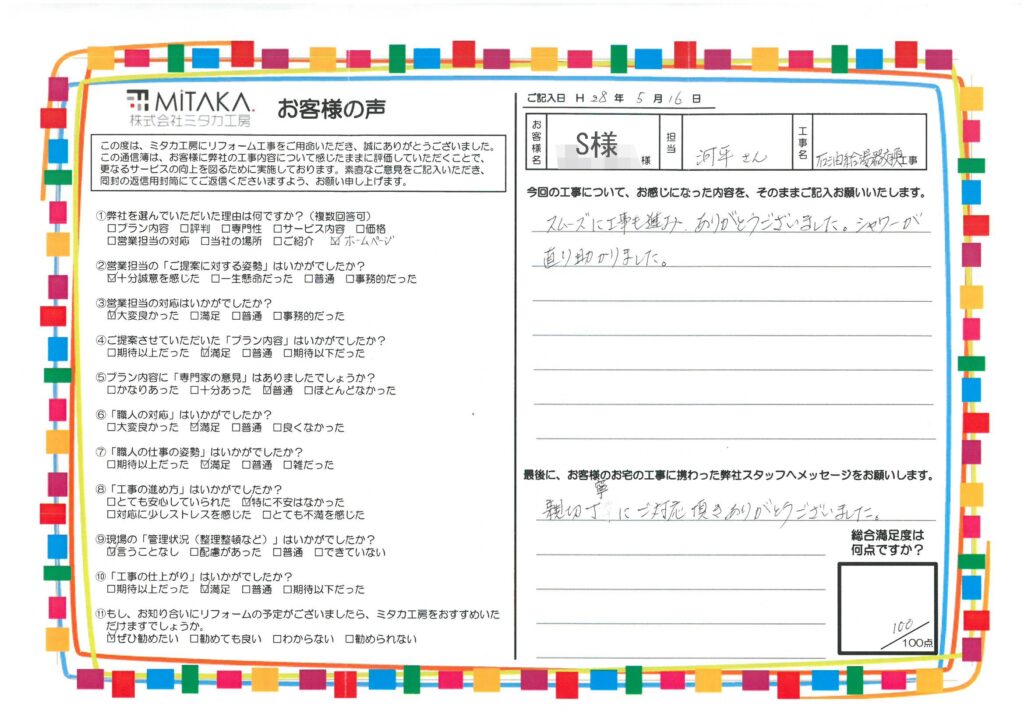 MiTAKA.
株式会社ミタカ工房
お客様の声
この度は、ミタカ工房にリフォーム工事をご用命いただき、誠にありがとうございました。
この通信簿は、お客様に弊社の工事内容について感じたままに評価していただくことで、
更なるサービスの向上を図るために実施しております。素直なご意見をご記入いただき、
同封の返信用封筒にてご返信くださいますよう、お願い申し上げます。
①弊社を選んでいただいた理由は何ですか?(複数回答可)
□プラン内容 □評判 □専門性 □サービス内容 □価格
□営業担当の対応 □当社の場所 □ご紹介 ☑ホームページ
②営業担当の「ご提案に対する姿勢」はいかがでしたか?
☑十分誠意を感じた □一生懸命だった □普通 □事務的だった
③営業担当の対応はいかがでしたか?
☑大変良かった □満足 □普通 □事務的だった
④ご提案させていただいた「プラン内容」はいかがでしたか?
□期待以上だった ☑満足 □普通 □期待以下だった
⑤プラン内容に「専門家の意見」はありましたでしょうか?
□かなりあった □十分あった ☑普通 □ほとんどなかった
⑥「職人の対応」はいかがでしたか?
□大変良かった ☑満足 □普通 □良くなかった
⑦「職人の仕事の姿勢」はいかがでしたか?
□期待以上だった ☑満足 □普通 □雑だった
⑧「工事の進め方」はいかがでしたか?
□とても安心していられた ☑特に不安はなかった
□対応に少しストレスを感じた □とても不満を感じた
⑨現場の「管理状況(整理整頓など)」はいかがでしたか?
☑言うことなし □配慮があった □普通 □できていない
⑩「工事の仕上がり」はいかがでしたか?
□期待以上だった ☑満足 □普通 □期待以下だった
⑪もし、お知り合いにリフォームの予定がございましたら、ミタカ工房をおすすめいた
だけますでしょうか。
☑ぜひ勧めたい □勧めても良い □わからない □勧められない
ご記入日 H 28 年 5 月 16 日
お客様名 S様 様 担当 河平さん 工事名 石油給湯器交換工事
今回の工事について、お感じになった内容を、そのままご記入お願いいたします。
スムーズに工事も進み、ありがとうございました。シャワーが
直り助かりました。
最後に、お客様のお宅の工事に携わった弊社スタッフへメッセージをお願いします。
親切丁寧にご対応頂きありがとうございました。
総合満足度は
何点ですか?
100
/100点